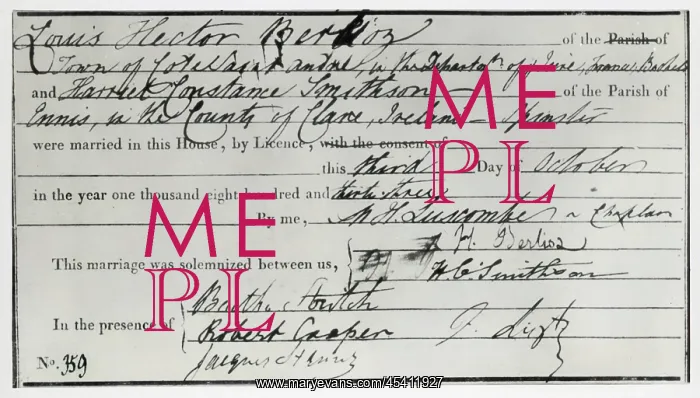 Louis Hector Berlioz of the Parish of
Town of Cote Saint André, in the Departnt of Isère, France, Bachelor
and Harriet Constance Smithson of the Parish of
Ennis, in the County of Clare, Ireland Spinster
were married in this House, by Licence, with the consent of
this third Day of October
in the year one thousand eight hundred and thirty three
By me, M. H. Luscombe a Chaplain
This marriage was solemnized between us, H. Berlioz
H. C. Smithson
In the presence of
Robert Cooper F. Liszt
Jacques Henry
No. 359
ME
PL
ME
PL
www.maryevans.com/45411927